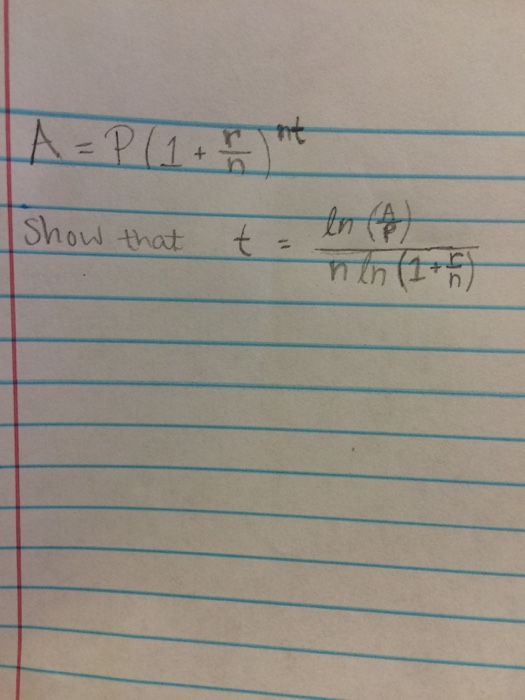 A = P(1 + r/n)^nt
Show that t = ln (A/P) / n ln (1 + r/n)